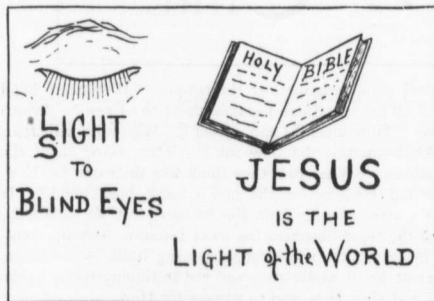 LIGHT
S
TO
BLIND EYES
HOLY BIBLE
JESUS
IS THE
LIGHT of the WORLD